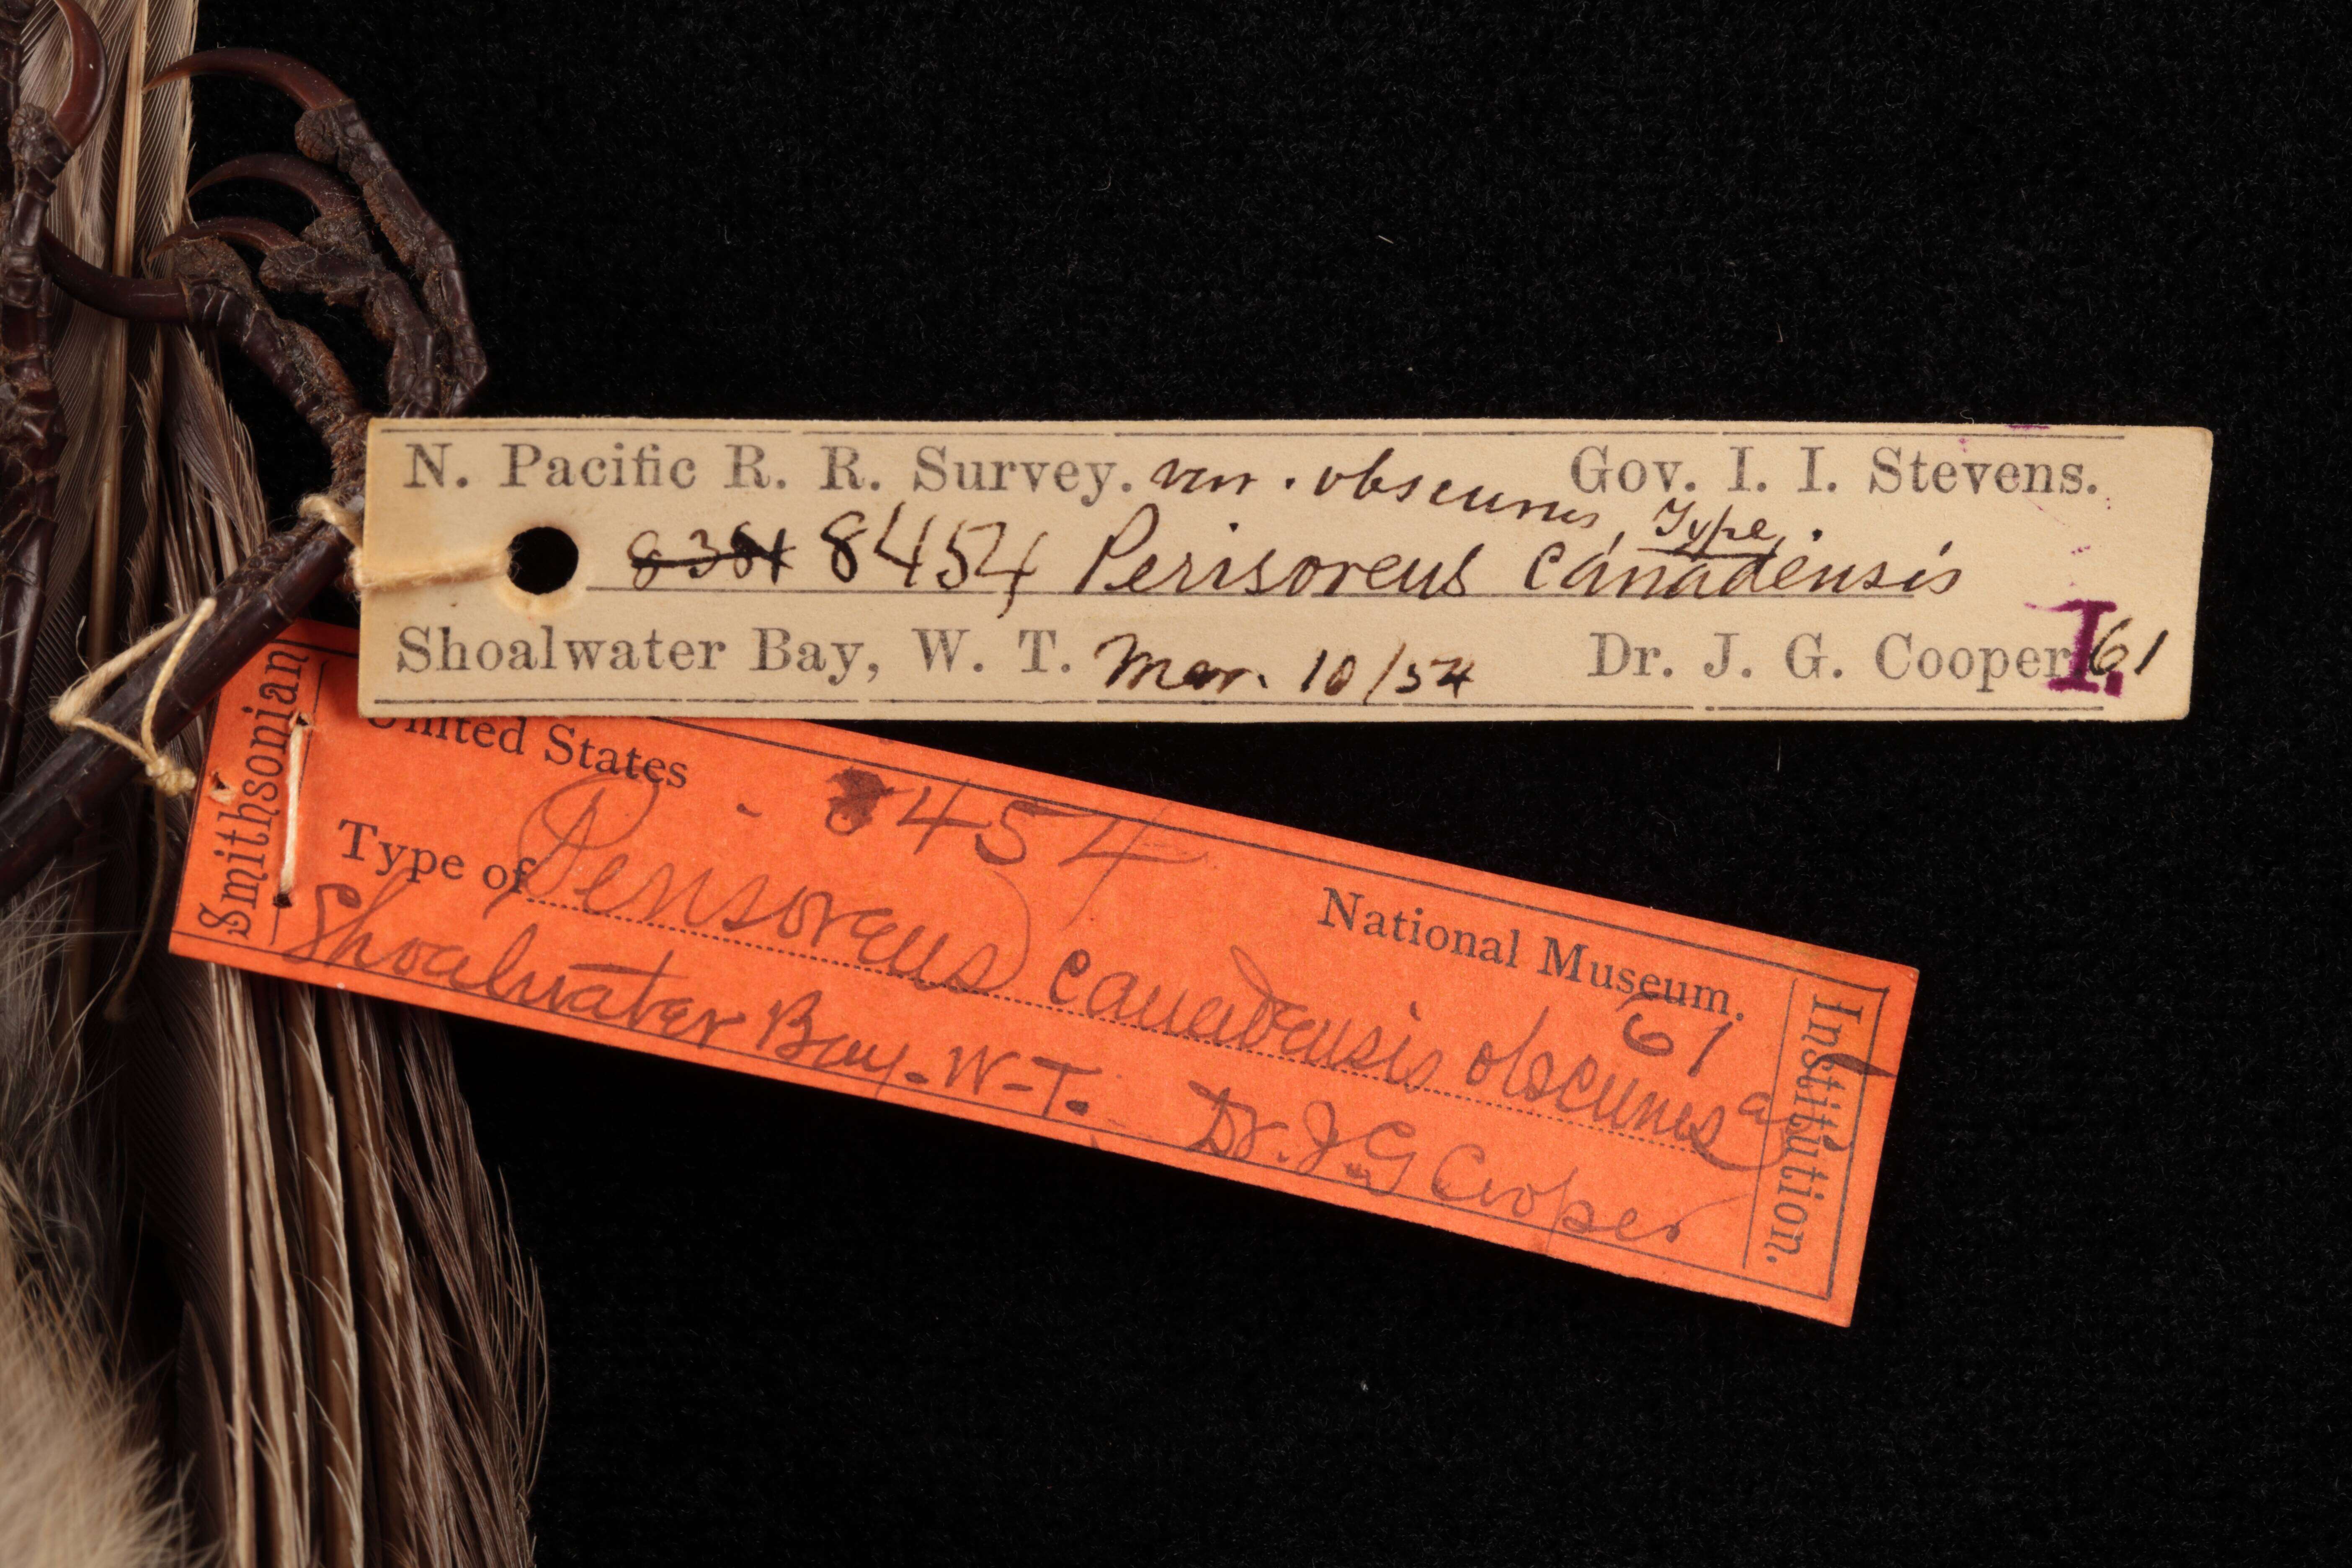 N. Pacific R. R. Survey. var. obscurus, Type. Gov. I. I. Stevens.
8381 8454, Perisoreus canadensis
Shoalwater Bay, W. T. Mar. 10/54 Dr. J. G. Cooper I. 61
Smithsonian
United States 8454 National Museum.
61
Type of Perisoreus canadensis obscurus a
Shoalwater Bay. W-T. Dr. J. G Cooper
Institution.